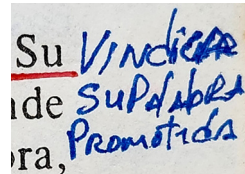 Su VINDICA
nde SU PALABRA
ora, PROMETIDA